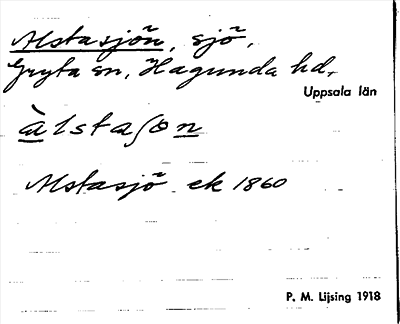 Alstasjön, sjö,
Gryta sn, Hagunda hd,
Uppsala län
àlstaʃön
Alstasjö ek 1860
P. M. Lijsing 1918